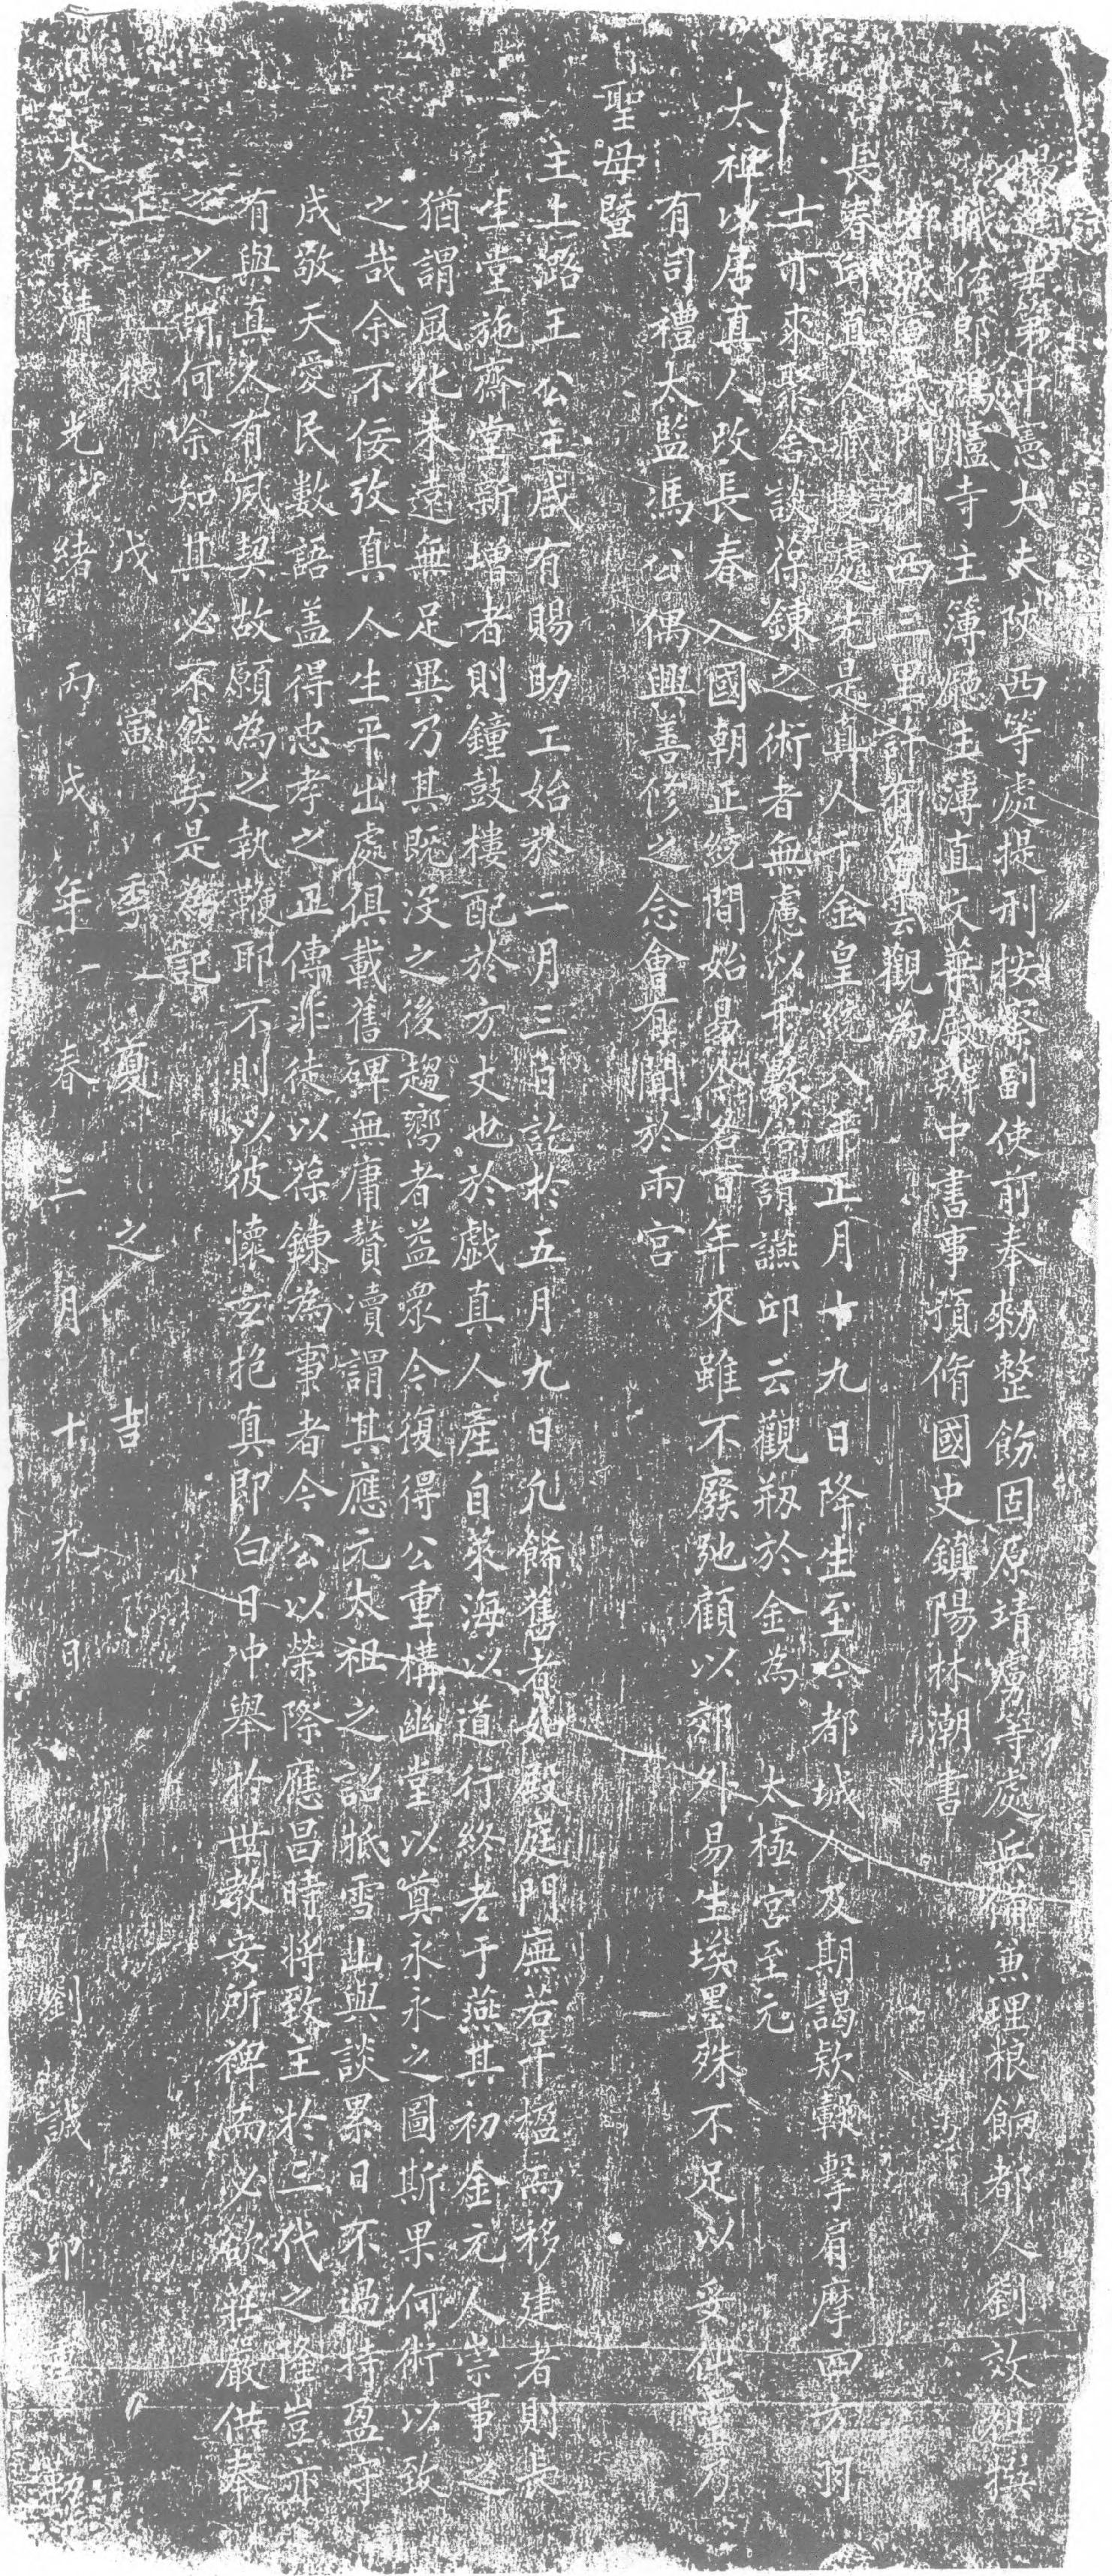 賜進士第中憲大夫陝西等處提刑按察副使前奉勑整飭固原靖虜等處兵備兼理粮餉都人劉效祖撰
職佐郎鴻臚寺主簿廳主簿直文華殿辦中書事預脩國史鎮陽林潮書
都城宣武門外西三里許有白雲觀為
長春邱真人藏蛻處先是真人于金皇統八年正月十九日降生至今都城人及期謁款轂擊肩摩四方羽
士亦來聚舍談葆鍊之術者無慮以千數俗謂讌邱云觀剏於金為太極宮至元
太祖以居真人改長春入國朝正統間始易今名百年來雖不廢弛顧以郊外易生埃墨殊不足以妥仙靈乃
有司禮大監馮公偶興善修之念會有聞於兩宮
聖母暨
主上潞王公主咸有賜助工始於二月三日訖於五月九日凡餙舊者如殿庭門廡若干楹而移建者則長
生堂施齋堂新增者則鐘鼓樓配於方丈也於戲真人產自萊海以道行終老于燕其初金元人崇事之
猶謂風化未遠無足異乃其既沒之後趨嚮者益眾今復得公重構幽堂以奠永永之圖斯果何術以致
之哉余不佞攷真人生平出處俱載舊碑無庸贅瀆謂其應元太祖之詔抵雪山與談累日不過持盈守
成敬天愛民數語盖得忠孝之正傳非徒以葆鍊為事者今公以榮際應昌時将致主於三代之隆豈亦
有與真人有夙契故願為之執鞭耶不則以彼懷玄抱真即白日冲舉於世教安所裨而必欲莊嚴供奉
之之聞何余知其必不然矣是為記
正德戊寅季夏之吉
大清光緒丙戌年春三月十九日劉誠印重勒